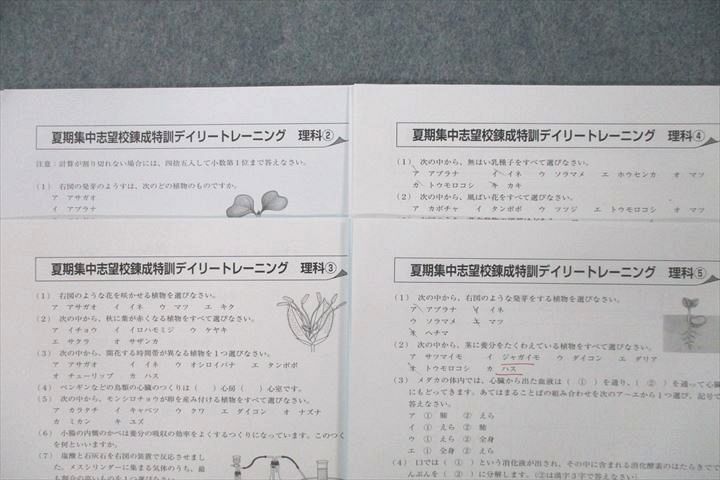 夏期集中志望校錬成特訓デイリートレーニング　理科②
注意：計算が割り切れない場合には，四捨五入して小数第1位まで答えなさい。
(1) 右図の発芽のようすは，次のどの植物のものですか。
ア アサガオ
イ アブラナ
夏期集中志望校錬成特訓デイリートレーニング　理科④
(1) 次の中から，無はい乳種子をすべて選びなさい。
ア アブラナ　イ イネ　ウ ソラマメ　エ ホウセンカ　オ マツ
カ トウモロコシ　キ カキ
(2) 次の中から，風ばい花をすべて選びなさい。
ア カボチャ　イ タンポポ　ウ ツツジ　エ トウモロコシ　オ マツ
夏期集中志望校錬成特訓デイリートレーニング　理科③
(1) 右図のような花を咲かせる植物を選びなさい。
ア アサガオ　イ イネ　ウ マツ　エ キク
(2) 次の中から，秋に葉が赤くなる植物をすべて選びなさい。
ア イチョウ　イ イロハモミジ　ウ ケヤキ
エ サクラ　オ サザンカ
(3) 次の中から，開花する時間帯が異なる植物を1つ選びなさい。
ア アサガオ　イ イネ　ウ オシロイバナ　エ タンポポ
オ チューリップ　カ ハス
(4) ペンギンなどの鳥類の心臓のつくりは（　）心房（　）心室です。
(5) 次の中から，モンシロチョウが卵を産み付ける植物をすべて選びなさい。
ア カラタチ　イ キャベツ　ウ クワ　エ ダイコン　オ ナズナ
カ ミカン　キ ユズ
(6) 小腸の内側のかべは養分の吸収の効率をよくするつくりになっています。このつく
を何といいますか。
(7) 塩酸と石灰石を右図の装置で反応させまし
た。メスシリンダーに集まる気体のうち，最
も割合の高いものを1つ選びなさい。
夏期集中志望校錬成特訓デイリートレーニング　理科⑤
(1) 次の中から，右図のような発芽をする植物を選びなさい。
ア アブラナ　イ イネ
ウ ソラマメ　エ マツ
オ ヘチマ
(2) 次の中から，茎に養分をたくわえている植物をすべて選びなさい。
ア サツマイモ　イ ジャガイモ　ウ ダイコン　エ ダリア
オ トウモロコシ　カ ハス
(3) メダカの体内では，心臓から出た血液は（①）を通り，（②）を通って心臓
にもどってきます。あてはまることばの組み合わせを次のア～エから1つ選び，記号で
答えなさい。
ア ① 肺　② えら
イ ① えら　② 肺
ウ ① えら　② 全身
エ ① 全身　② えら
(4) 口では（①）という消化液が出され，その中に含まれる消化酵素のはたらきでで
んぷんを（③）に分解します。（②は漢字3字で答えなさい）